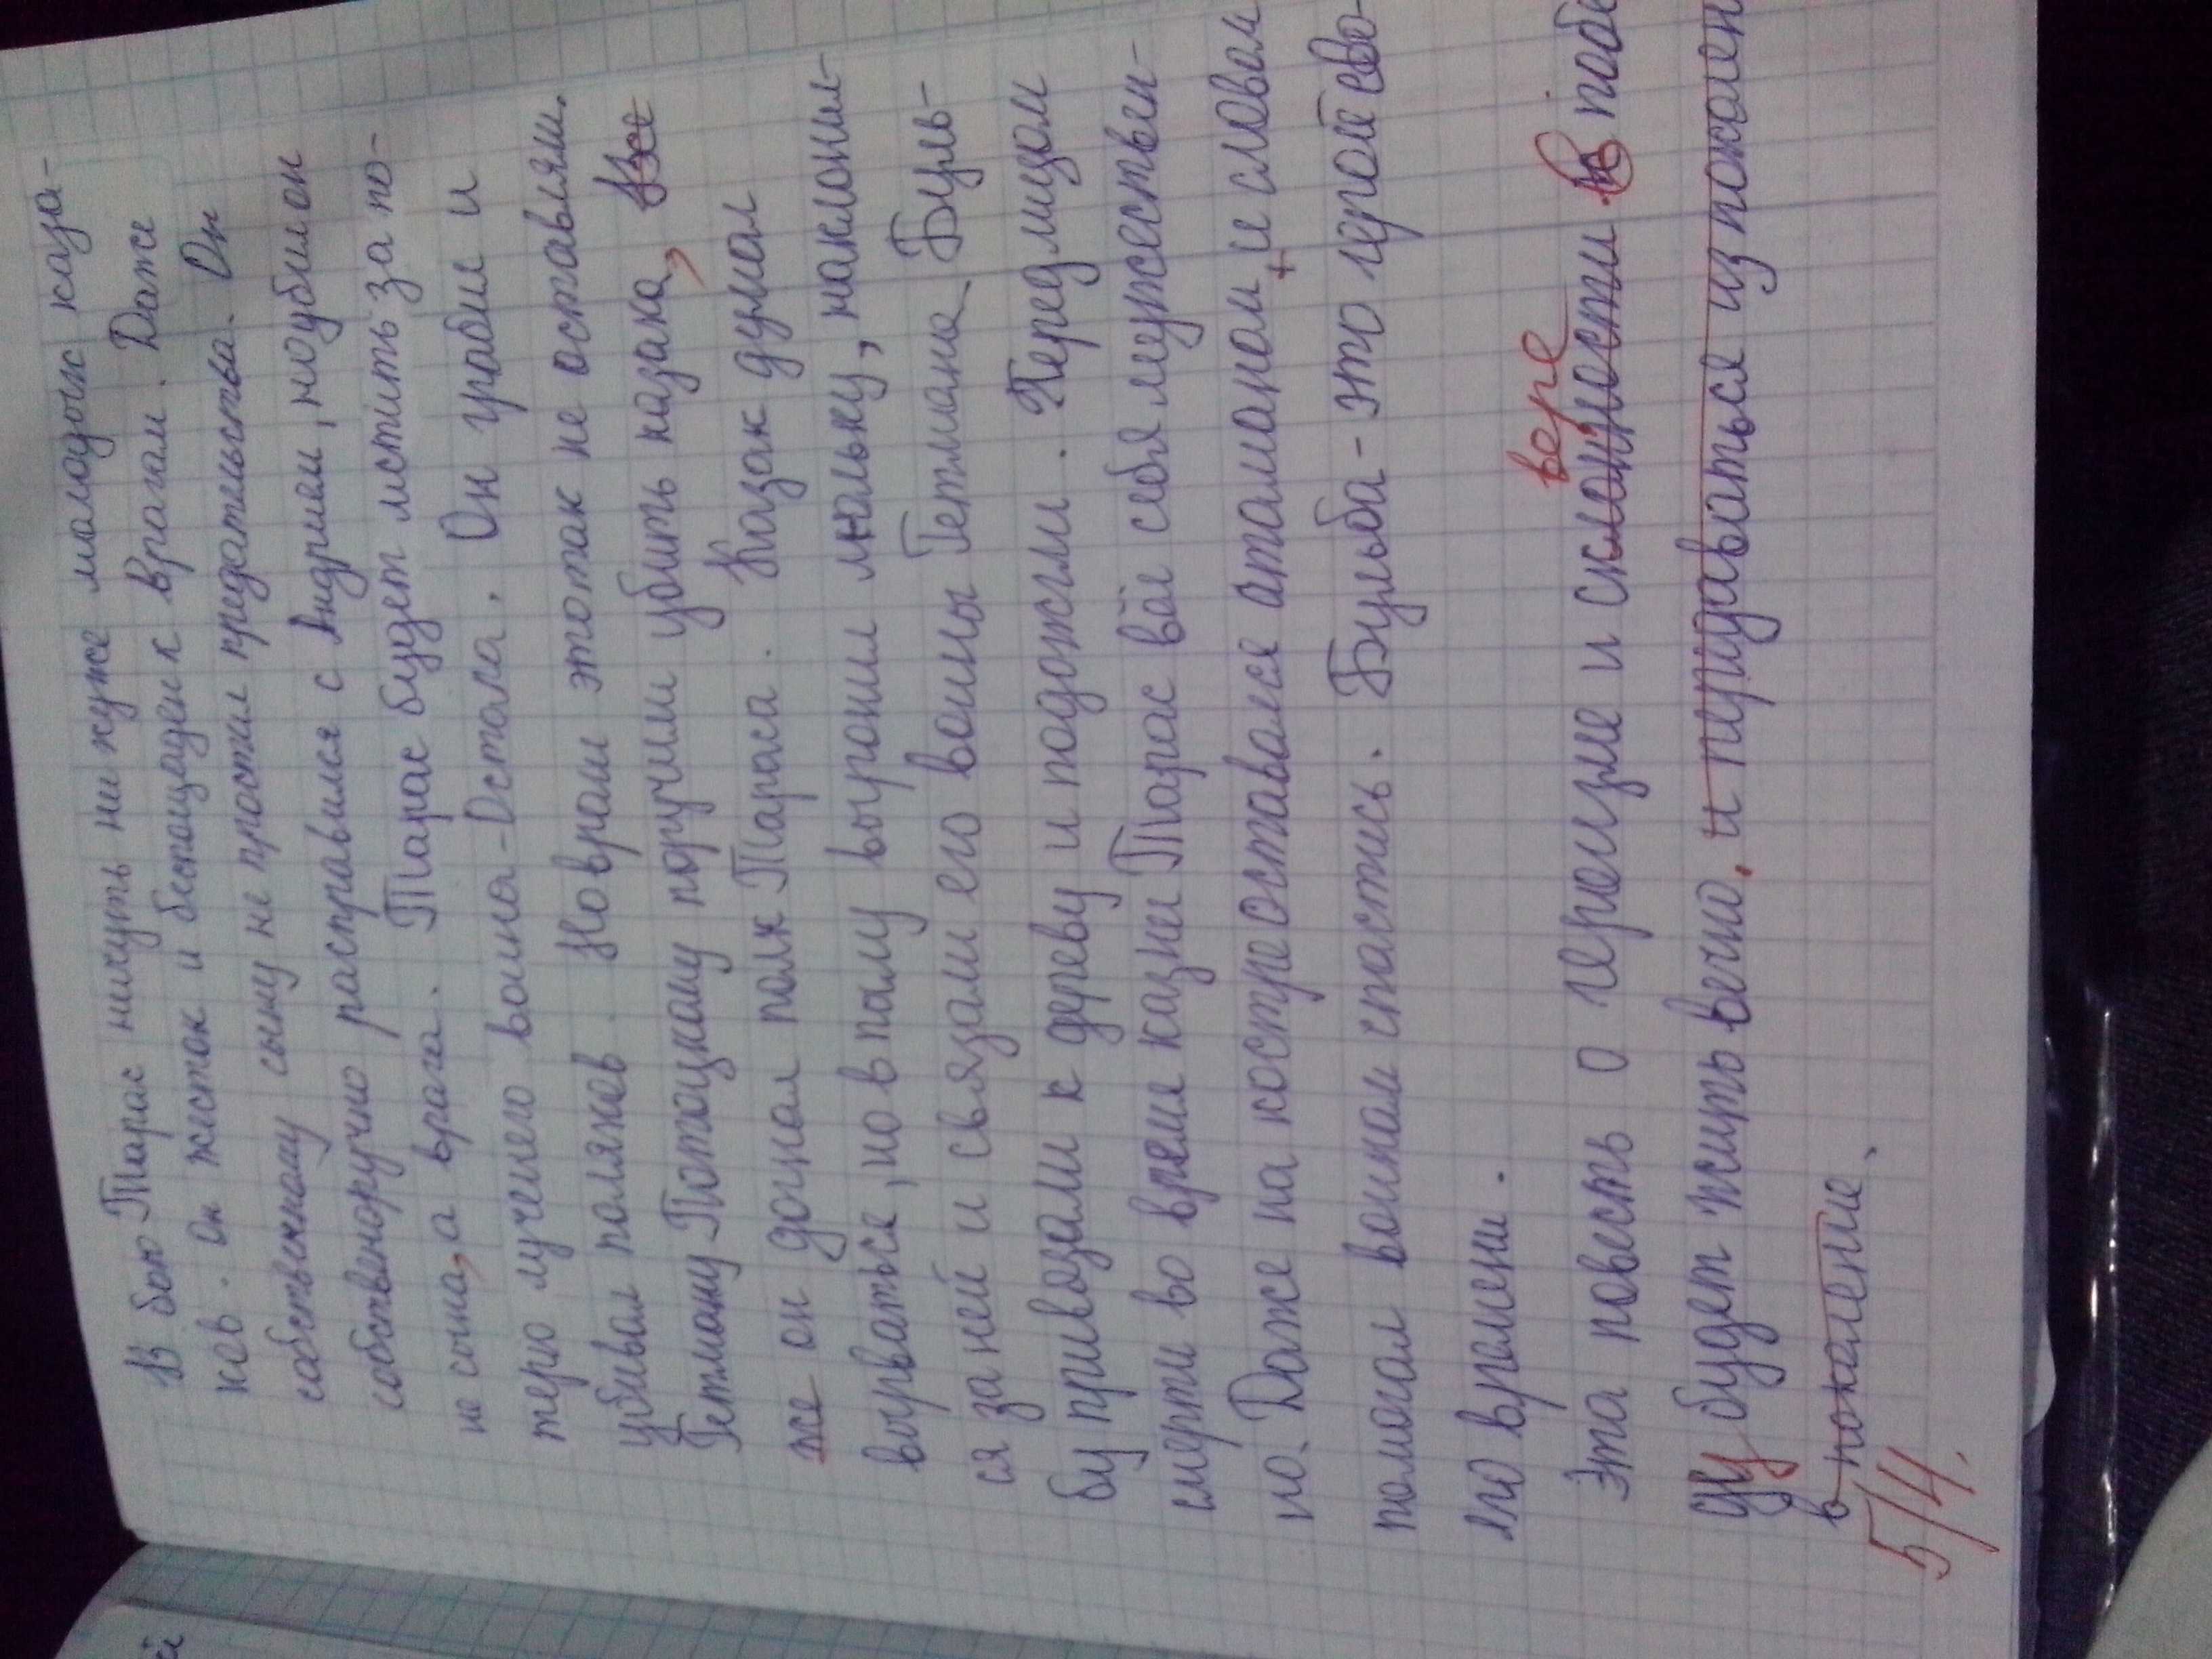 В бою Тарас ничуть ни хуже молодых каза-
ков. Он жесток и беспощаден к врагам. Даже
собственному сыну не простил предательства. Он
собственоручно расправился с Андрием, но убил он
не сына, а врага. Тарас будет мстить за по-
терю лучшего воина-Остапа. Он грабил и
убивал поляков. Но враги это так не оставили.
Гетману Потоцкому поручили убить казака, вже
же он догнал полк Тараса. Казак думал
вырваться, но в пылу выронил люльку, наклонил-
ся за ней и связали его воины Гетмана. Буль-
бу привязали к дереву и подожгли. Перед лицом
смерти во время казни Тарас вёл себя мужествен-
но. Даже на костре оставался атаманом и словом
помогал воинам спастись. Бульба - это герой сво-
его времени.
Эта повесть о героизме и склонности вере в побе
ду будет жить вечно. и перидаваться из поколен
в поколение.
5/4.
й